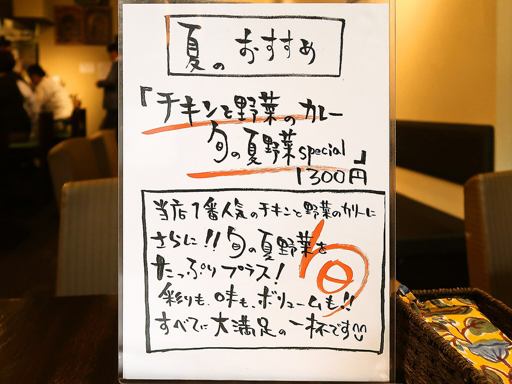 夏のおすすめ
「チキンと野菜のカレー
旬の夏野菜special」
1300円
当店1番人気のチキンと野菜のカリーに
さらに!!旬の夏野菜を
たっぷりプラス!
彩りも、味も、ボリュームも!!
すべてに大満足の一杯です
旬